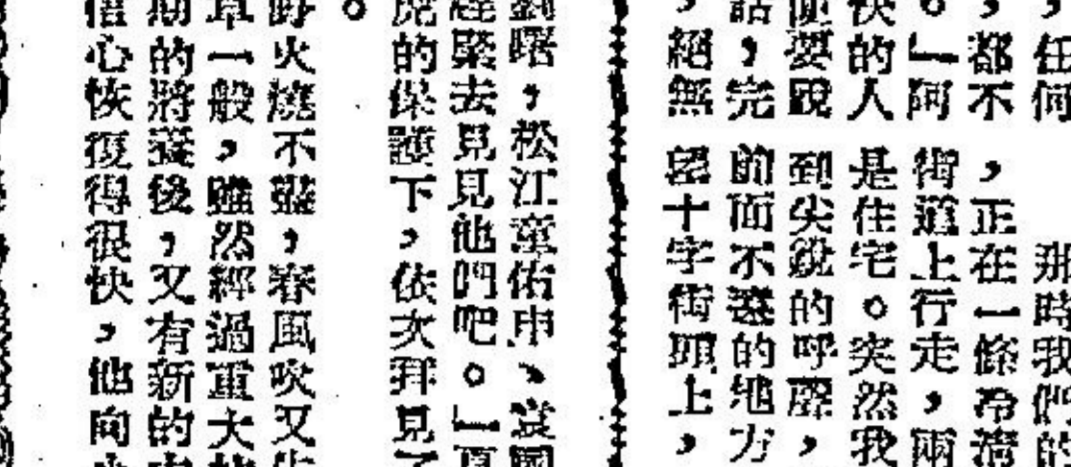 ，任何
，都不
。」阿
快的人
便要說
話，完
，絕無
那時我們的
，正在一條冷清
街道上行走，兩
是住宅。突然我
到尖銳的呼聲，
前面不遠的地方
十字街頭上，
劉曙，松江童佑申、袁國
緊去見見他們吧。」
的保護下，依次拜見了
。
野火燒不盡，春風吹又生
草一般，雖然經過重大的
期的將養後，又有新的
信心恢復得很快，他向